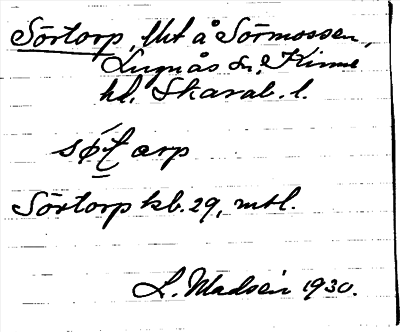 Sörtorp, lht å Sörmossen,
Lugnås sn, Kinne
hd, Skarab. l.
Sörtorp kb. 29, mtl.
L. Madsén 1930.